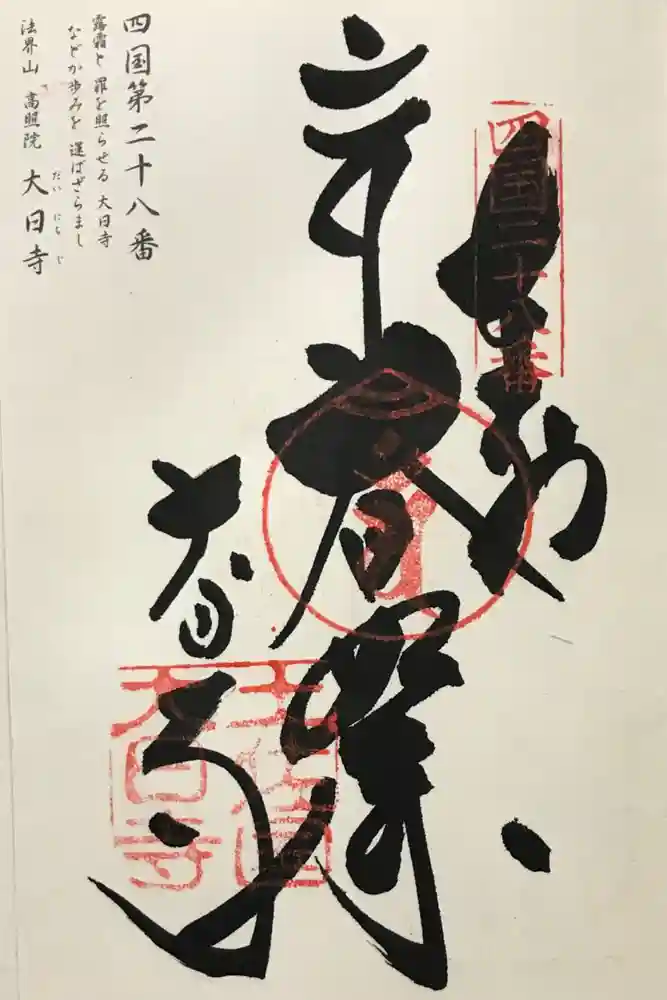 四国第二十八番
露霜と 罪を照らせる 大日寺
などか歩みを 運ばざらまし
法界山 高照院 大日寺
だい にち じ
四国二十八番
奉納
大日寺
土佐国
大日寺